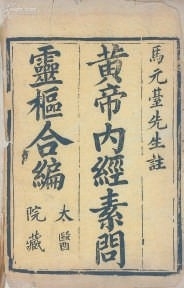 馬元臺先生註
黃帝內經素問
靈樞合編
太醫
院藏